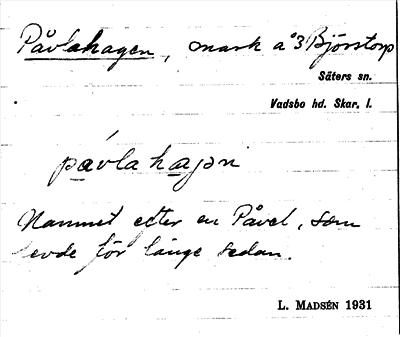 Påvlahagen, mark å ³Björstorp
Säters sn.
Vadsbo hd. Skar. l.
pàvlahaɡən
Namnet efter en Påvel, som
levde för länge sedan.
L. MADSÉN 1931